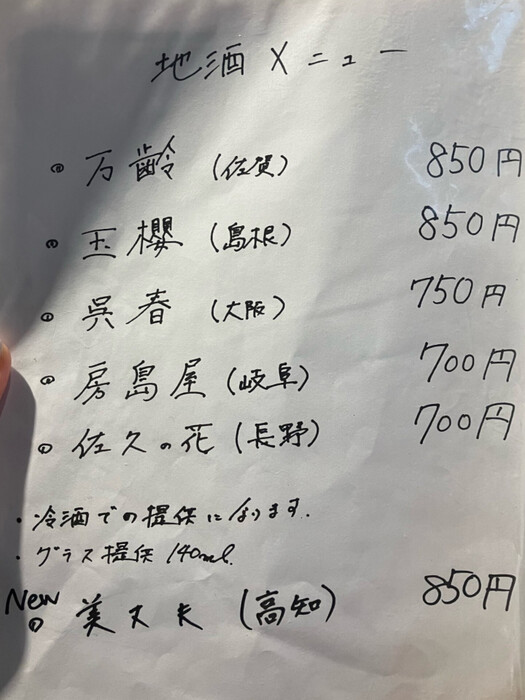 地酒メニュー
万齢 (佐賀) 850円
玉櫻 (島根) 850円
呉春 (大阪) 750円
房島屋 (岐阜) 700円
佐久の花 (長野) 700円
・冷酒での提供になります.
・グラス提供 140ml.
New
美丈夫 (高知) 850円